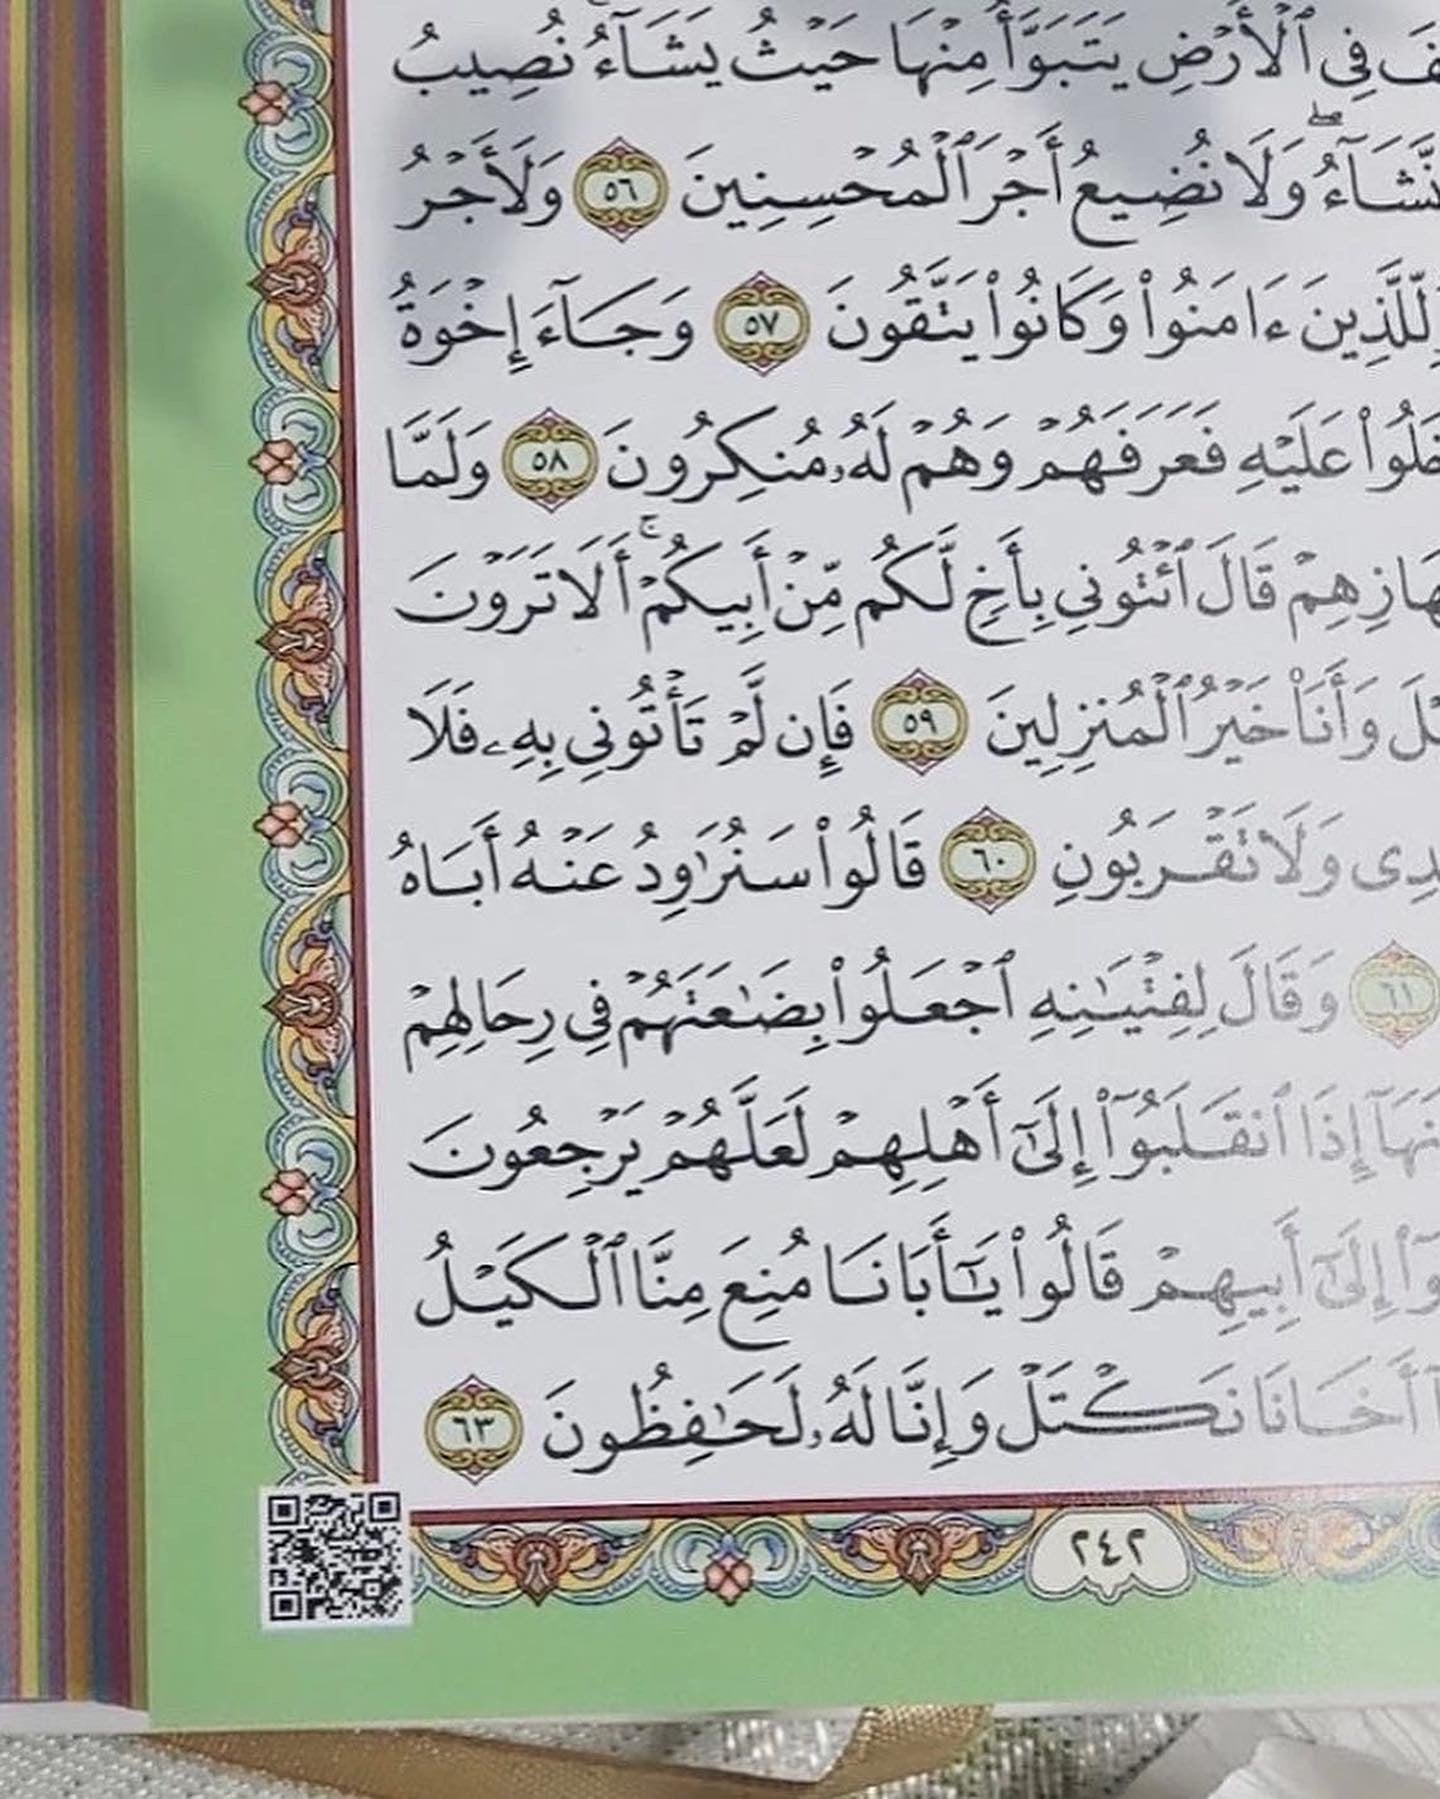 فِى ٱلْأَرْضِ يَتَبَوَّأُ مِنْهَا حَيْثُ يَشَآءُ نُصِيبُ
نَّشَآءُ ۖ وَلَا نُضِيعُ أَجْرَ ٱلْمُحْسِنِينَ ٥٦ وَلَأَجْرُ
لِّلَّذِينَ ءَامَنُوا۟ وَكَانُوا۟ يَتَّقُونَ ٥٧ وَجَآءَ إِخْوَةُ
عَلَيْهِ فَعَرَفَهُمْ وَهُمْ لَهُۥ مُنكِرُونَ ٥٨ وَلَمَّا
قَالَ ٱئْتُونِى بِأَخٍ لَّكُم مِّنْ أَبِيكُمْ ۚ أَلَا تَرَوْنَ
وَأَنَا۠ خَيْرُ ٱلْمُنزِلِينَ ٥٩ فَإِن لَّمْ تَأْتُونِى بِهِۦ فَلَا
وَلَا تَقْرَبُونِ ٦٠ قَالُوا۟ سَنُرَٰوِدُ عَنْهُ أَبَاهُ
٦١ وَقَالَ لِفِتْيَـٰنِهِ ٱجْعَلُوا۟ بِضَـٰعَتَهُمْ فِى رِحَالِهِمْ
إِذَا ٱنقَلَبُوٓا۟ إِلَىٰٓ أَهْلِهِمْ لَعَلَّهُمْ يَرْجِعُونَ
إِلَىٰٓ أَبِيهِمْ قَالُوا۟ يَـٰٓأَبَانَا مُنِعَ مِنَّا ٱلْكَيْلُ
أَخَانَا نَكْتَلْ وَإِنَّا لَهُۥ لَحَـٰفِظُونَ ٦٣
٢٤٢